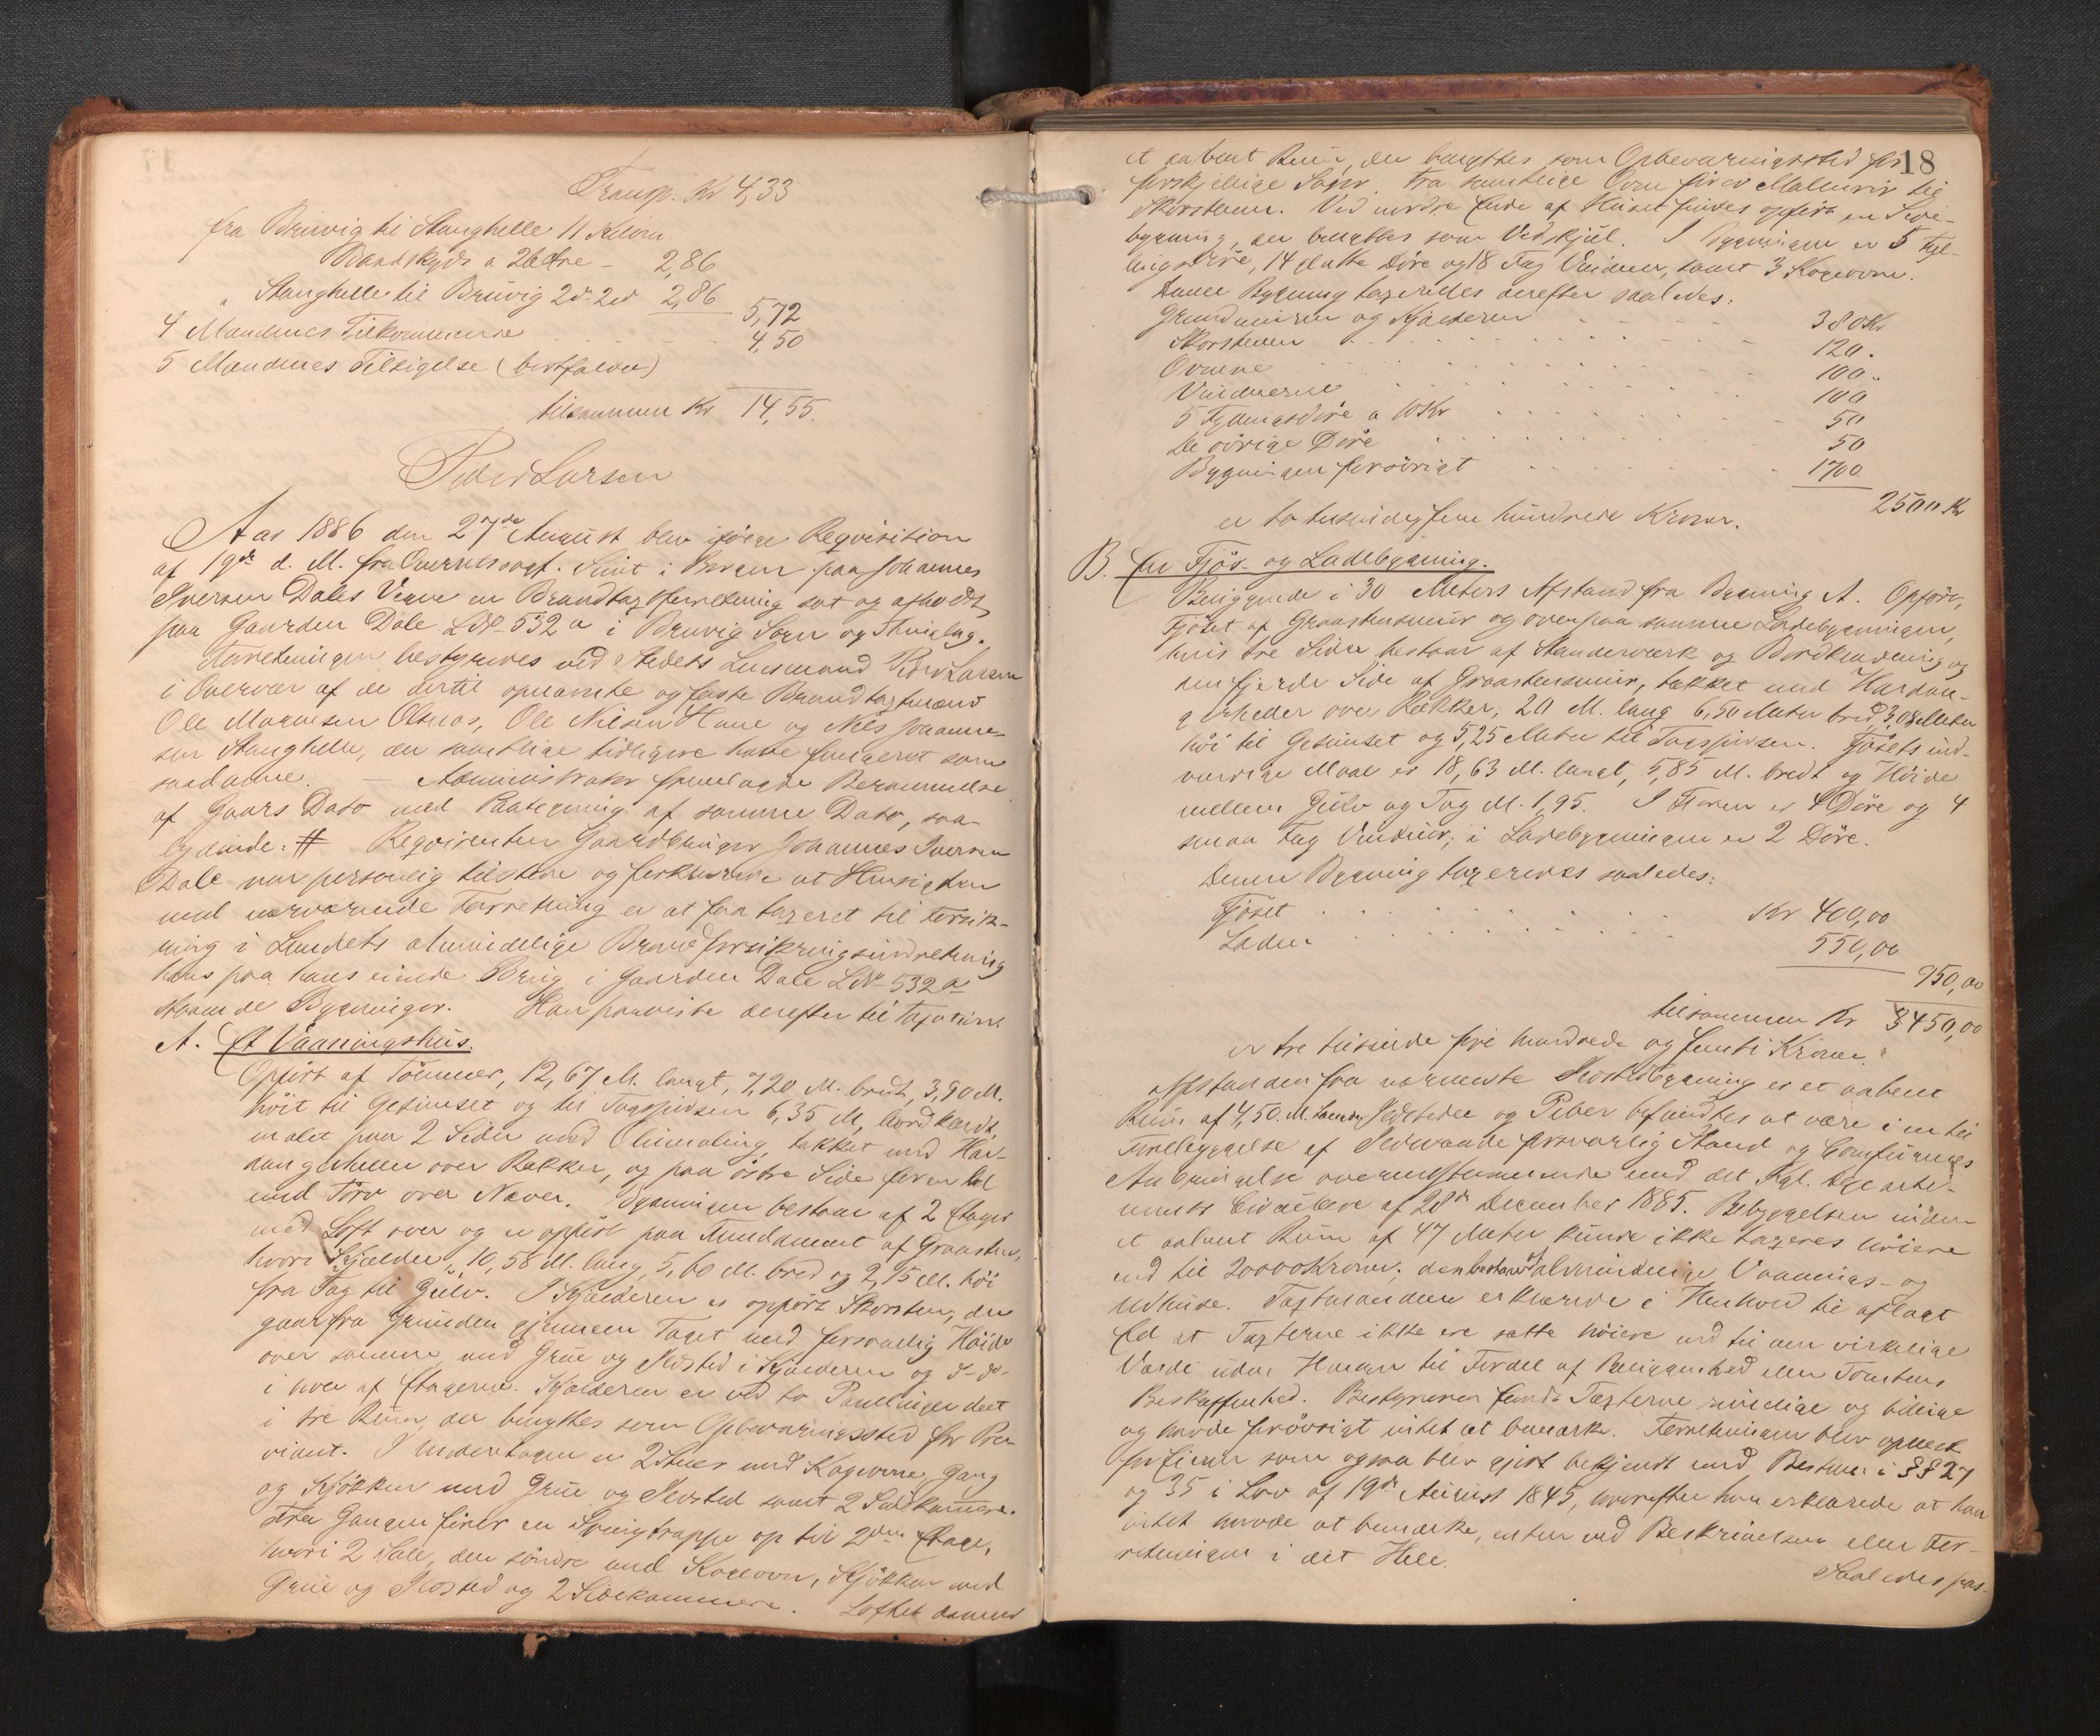 Transp. Kr 4,33
fra Bruvig til Stanghelle 11 Kilom.
Baadskyds a 26 Øre – 2,86
" Stanghelle til Bruvig 2d. 2ed 2,86 5,72
4 Mændenes Tilkommende 4,50
5 Mændenes Tilsigelse (bortfalder)
tilsammen Kr 14,55.
Peder Larsen
Aar 1886 den 27de August blev ifølge Reqvisition
af 19de d. M. fra Overretssagf. Smit i Bergen paa Johannes
Iversen Dales Vegne en Brandtaxtforretning sat og afholdt
paa Gaarden Dale LNo 532 a i Bruvig Sogn og Thinglag.
Forretningen bestyredes ved Stedets Lensmand Peder Larsen
i Overvær af de dertil opnævnte og faste Brandtaxtmænd
Ole Mognesen Olsnæs, Ole Nilsen Hane og Nils Johanne-
sen Stanghelle, der samtlige tidligere have fungeret som
saadanne. – Administrator fremlagde Berammelse
af Gaars Dato med Paategning af samme Dato, saa-
lydende: # Reqvirenten Gaardbruger Johannes Iversen
Dale var personlig tilstede og forklarede at Hensigten
med nærværende Forretning er at faa taxeret til Forsik-
ring i Landets almindelige Brandforsikringsindretning
hans paa hans eiende Brug i Gaarden Dale LNo 532 a
staaende Bygninger. Han paaviste derefter til Taxation:
A. Et Vaaningshus.
Opført af Tømmer, 12,67 M. langt, 7,20 M. bredt, 3,90 M.
høit til Gesimset og til Tagspidsen 6,35 M, bordklædt,
malet paa 2 Sider med Oliemaling, tækket med Har-
dangerheller over Rækker, og paa østre Side for en Del
med Tørv over Næver. Bygningen bestaar af 2 Etager
med Loft over og er opført paa Fundament af Graasten,
hvori Kjælder, 10,58 M. lang, 5,60 M. bred og 2,15 M. høi
fra Tag til Gulv. I Kjælderen er opført Skorsten, der
gaar fra Grunden gjennem Taget med forsvarlig Høide
over samme, med Grue og Ildsted i Kjælderen og d–do
i hver af Etagerne. Kjælderen er ved to Panelinger delt
i tre Rum, der benyttes som Opbevaringssted for Pro-
viant. I Underetagen er 2 Stuer med Kogeovne, Gang
og Kjøkken med Grue og Ildsted samt 2 Sidekamre.
Fra Gangen fører en Svingtrappe op til 2den Etage,
hvori 2 Sale, den søndre med Kogeovn, Kjøkken med
Grue og Ildsted og 2 Sidekammere. Loftet danner
18
et aabent Rum, der benyttes som Opbevaringssted for
forskjellige Sager. Fra samtlige Ovne fører Malmrør til
Skorstenen. Ved nordre Ende af Huset findes opført en Side-
bygning, der benyttes som Vedskjul. I Bygningen er 5 Fyl-
lingsdøre, 14 glatte Døre og 18 Fag Vinduer, samt 3 Kogeovne.
Denne Bygning taxeredes derefter saaledes:
Grundmuren og Kjælderen 380 Kr
Skorstenen 120.
Ovnene 100.
Vinduerne 100
5 Fyllingsdøre a 10 Kr 50
De øvrige Døre 50
Bygningen forøvrigt 1700
2500 Kr
er to tusinde fem hundrede Kroner.
B. En Fjøs- og Ladebygning.
Beliggende i 30 Meters Afstand fra Bygning A. Opført,
Fjøset af Graastensmur og ovenpaa samme Ladebygningen,
hvis tre Sider bestaar af Standerværk og Bordklædning og
den fjerde Side af Graastensmur, tækket med Hardan-
gerheller over Rækker, 20 M. lang 6,50 Meter bred, 3,08 Meter
høi til Gesimset og 5,25 Meter til Tagspidsen. Fjøsets ind-
vendige Maal er 18,63 M. langt, 5,85 M. bredt og Høide
mellem Gulv og Tag M. 1,95. I Floren er 4 Døre og 4
smaa Fag Vinduer; i Ladebygningen er 2 Døre.
Denne Bygning taxeredes saaledes:
Fjøset Kr 400,00
Laden 550,00
950,00
tilsammen Kr 3450,00
er tre tusinde fire hundrede og femti Kroner.
Afstanden fra nærmeste Nabobygning er et aabent
Rum af 4,50 M. Ildsteder og Piber befandtes at være i en til
Forebyggelse af Ildsvaade forsvarlig Stand og Comfurens
Anbringelse overensstemmende med det Kgl. Departe-
ments Circulære af 28de December 1885. Bebyggelsen inden
et aabent Rum af 47 Meter kunde ikke taxeres høiere
end til 20000 Kroner; den bestaar af almindelige Vaanings- og
Udhuse. Taxtmændene erklærede i Henhold til aflagt
Ed at Taxterne ikke ere satte høiere end til den virkelige
Værdi uden Hensyn til Fordel af Beliggenhed eller Tomtens
Beskaffenhed. Bestyreren fandt Taxterne rimelige og billige
og havde forøvrigt intet at bemærke. Forretningen blev oplæst
for Eieren som ogsaa blev gjort bekjendt med Bestem. i §§ 27
og 35 i Lov af 19de August 1845, hvorefter han erklærede at han
intet havde at bemærke, enten ved Beskrivelsen eller For-
retningen i det Hele.
Saaledes pas-